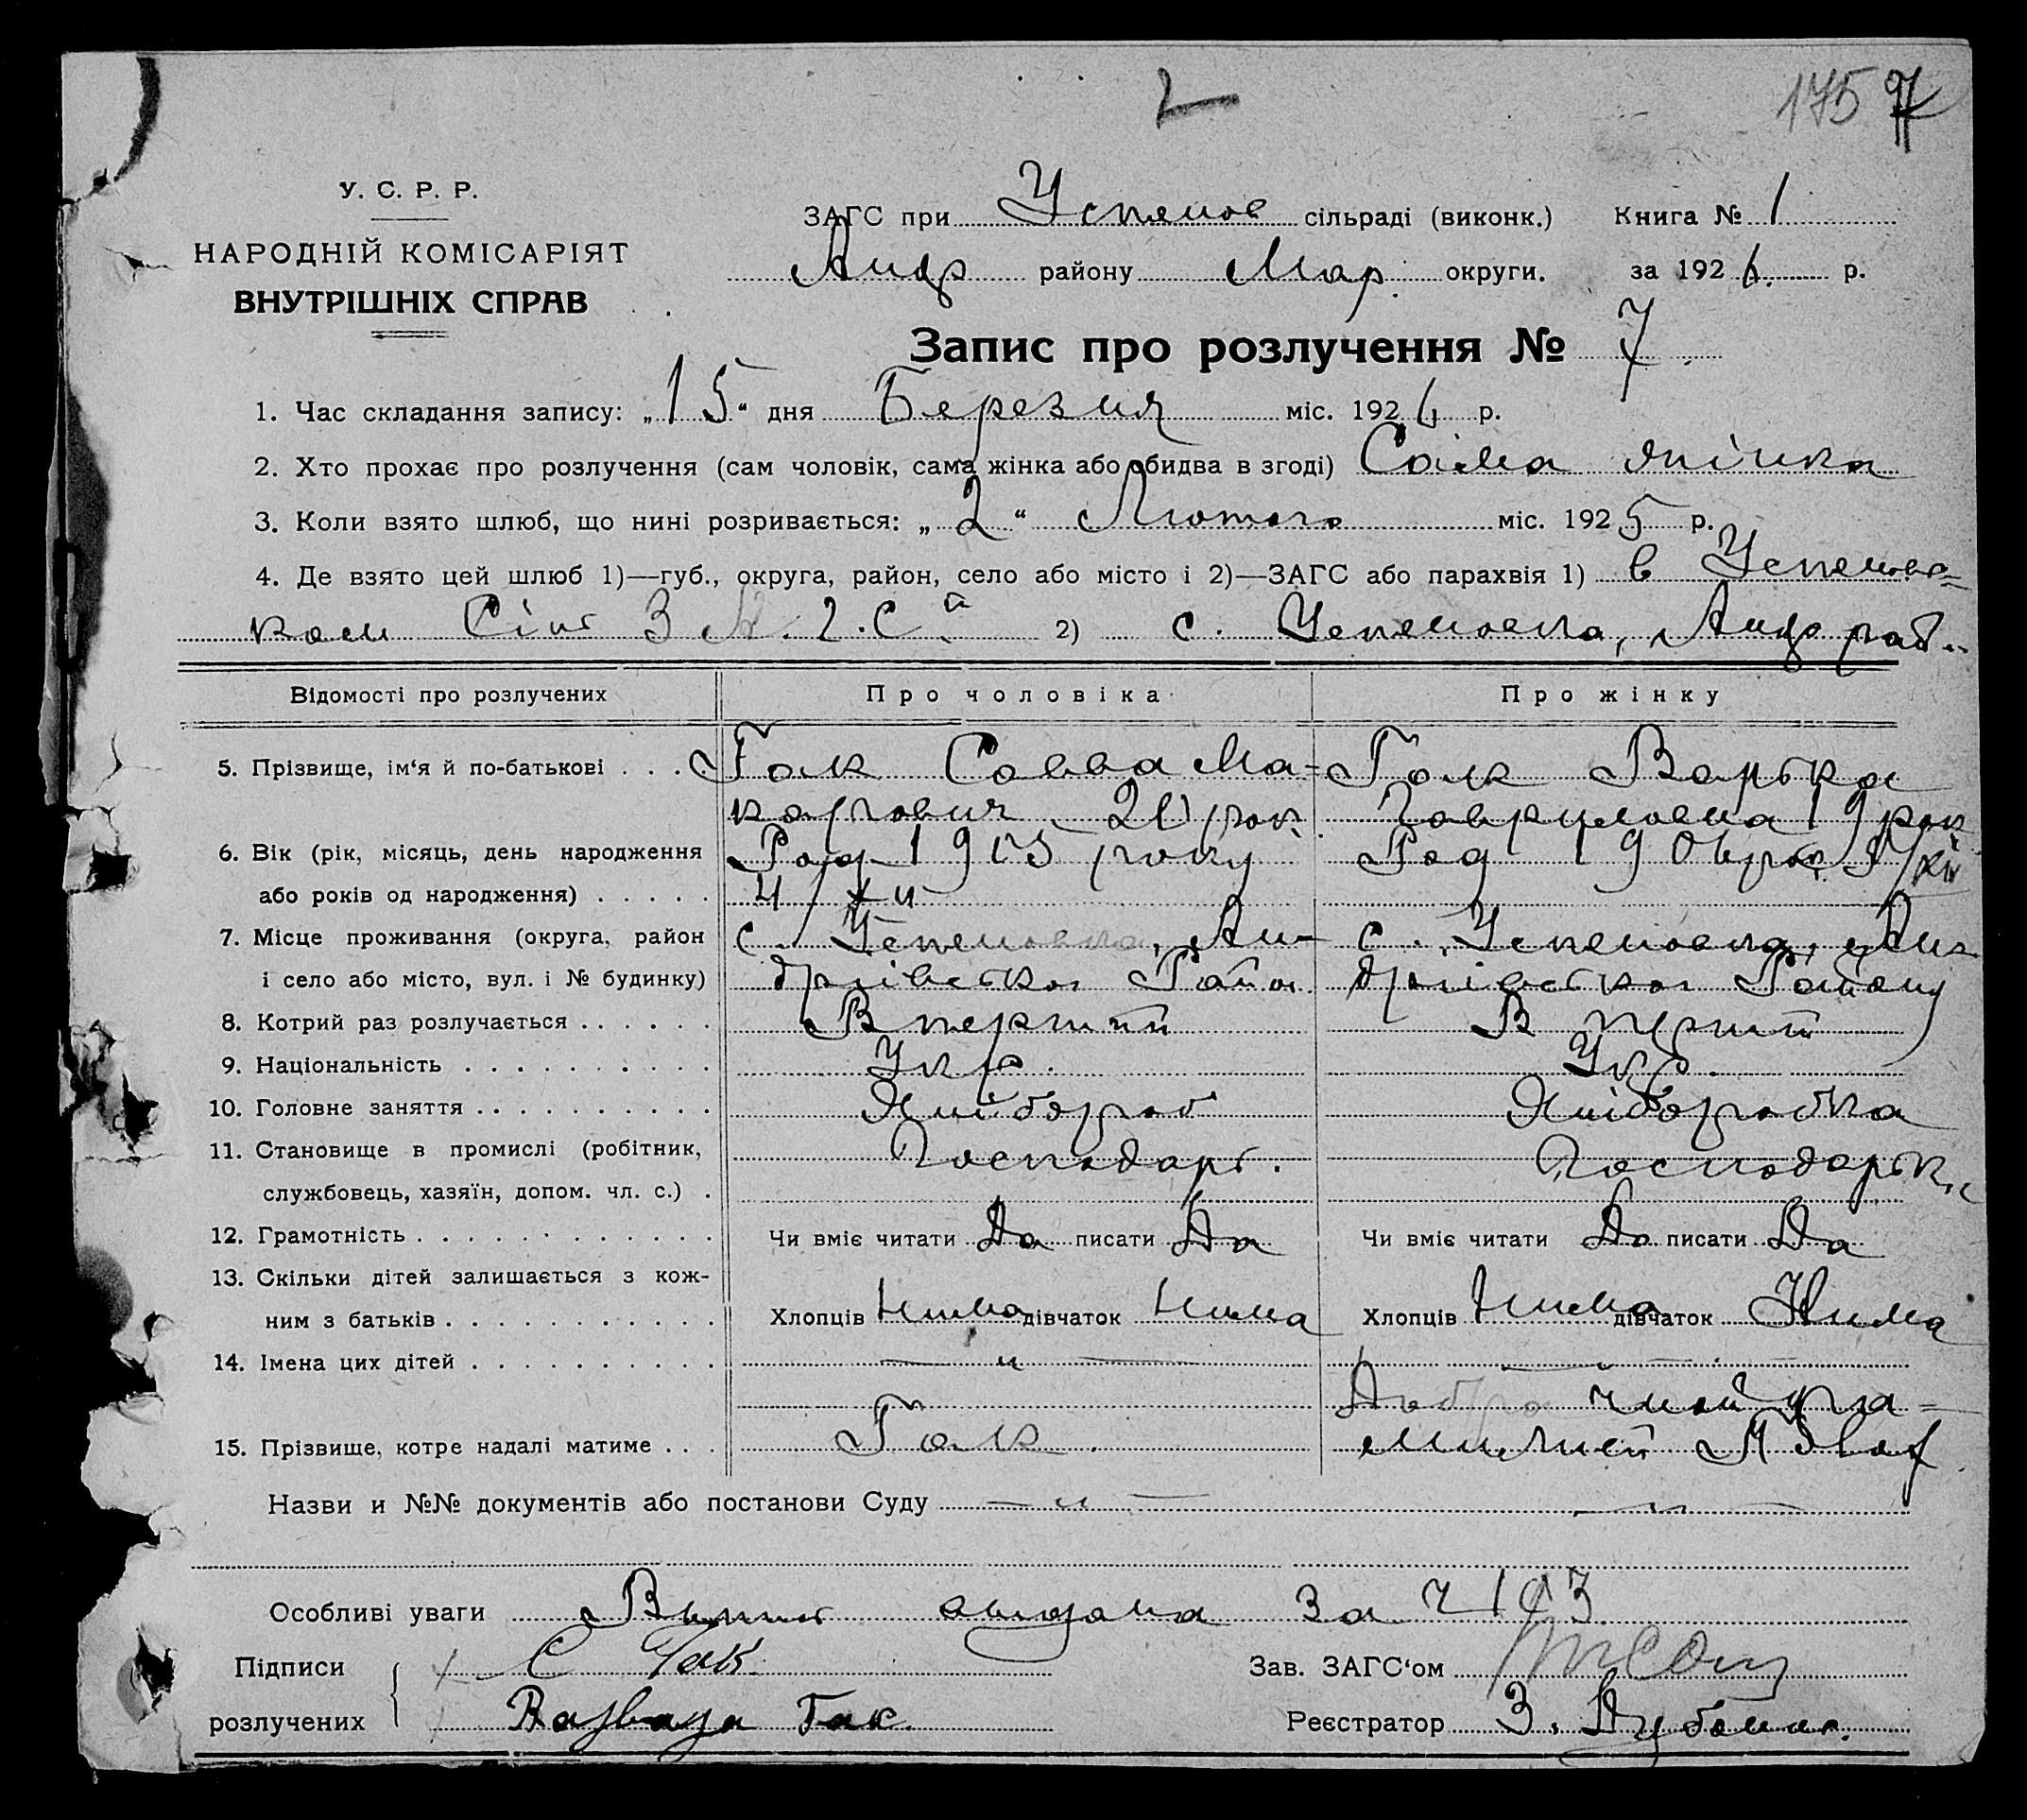 2
175 7
У. С. Р. Р.
НАРОДНІЙ КОМІСАРІЯТ
ВНУТРІШНІХ СПРАВ
ЗАГС при Успенов сільраді (виконк.) Книга № 1
Андр району Мар. округи. за 1926. р.
Запис про розлучення № 7
1. Час складання запису: „15“ дня Березня міс. 1926 р.
2. Хто прохає про розлучення (сам чоловік, сама жінка або обидва в згоді) Сама жінка
3. Коли взято шлюб, що нині розривається: „2“ Лютого міс. 1925 р.
4. Де взято цей шлюб 1)—губ., округа, район, село або місто і 2)—ЗАГС або парахвія 1) в Успенов=
ком 2) с. Успеновка, Андр
Відомості про розлучених Про чоловіка Про жінку
5. Прізвище, ім‘я й по-батькові . . . . Гак Савва Ма= Гак Варька
карович 20 рок. Гавриловна 19 рок
6. Вік (рік, місяць, день народження Род 1905 року Род 1906 рок
або років од народження) . . . . .
7. Місце проживання (округа, район с. Успеновка, Ан- с. Успеновка, Ан-
і село або місто, вул. і № будинку) дріівського Район. дріівського Району
8. Котрий раз розлучається . . . . . . Вперший В перший
9. Національність . . . . . . . . . . Укр. Укр.
10. Головне заняття . . . . . . . . . . Хлібороб Хліборобка
11. Становище в промислі (робітник, Господарь. Господарька
службовець, хазяїн, допом. чл. с.) .
12. Грамотність . . . . . . . . . . . . Чи вміє читати Да писати Да Чи вміє читати Да писати Да
13. Скільки дітей залишається з кож-
ним з батьків . . . . . . . . . . . Хлопців Нима дівчаток Нима Хлопців Нима дівчаток Нима
14. Імена цих дітей . . . . . . . . . . — „ —
15. Прізвище, котре надалі матиме . . . Гак.
Назви и №№ документів або постанови Суду — „ — — „ —
Особливі уваги видана за ч 103
Підписи С Гак. Зав. ЗАГС‘ом
розлучених Гак. Реєстратор З.